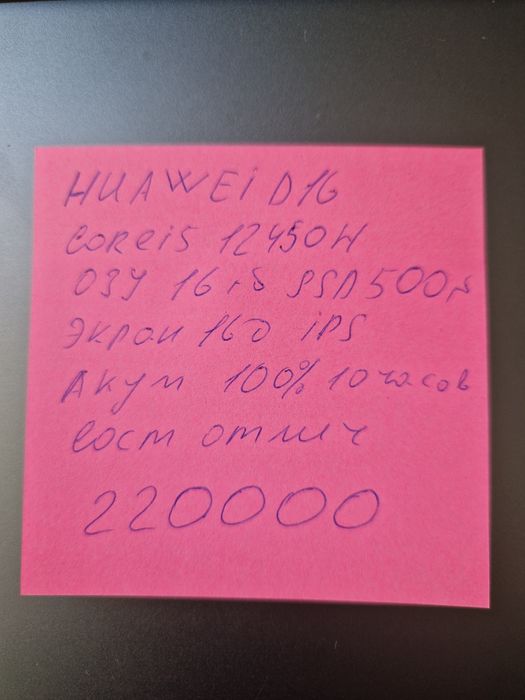 HUAWEi D16
Corei5 12450H
ОЗУ 16 гб SSD 500г
Экран 16д iPS
Акум 100% 10 часов
Сост отлич
220000